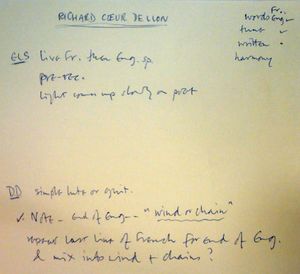 RICHARD CŒUR DE LION
Fr..
words Eng –
tune ✓
written •
harmony
ELS live Fr. then Eng. sp.
pre-rec.
light comes up slowly on poet
DD simple lute or guit.
✓ NAE – end of Eng – "wind or chain"
repeat last line of French for end of Eng.
& mix into wind + chains?